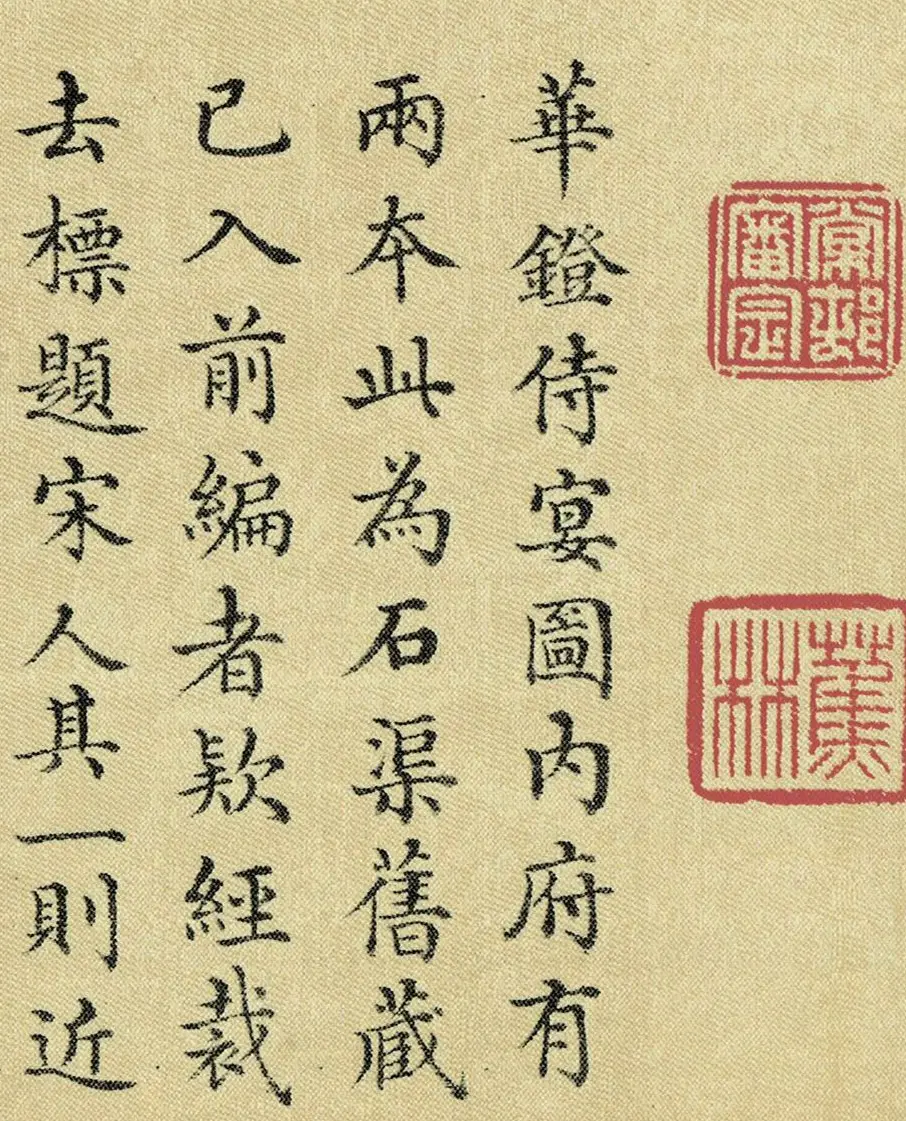 棠邨
審定
蕉林
華鐙侍宴圖內府有
兩本此為石渠舊藏
已入前編者欵經裁
去標題宋人其一則近